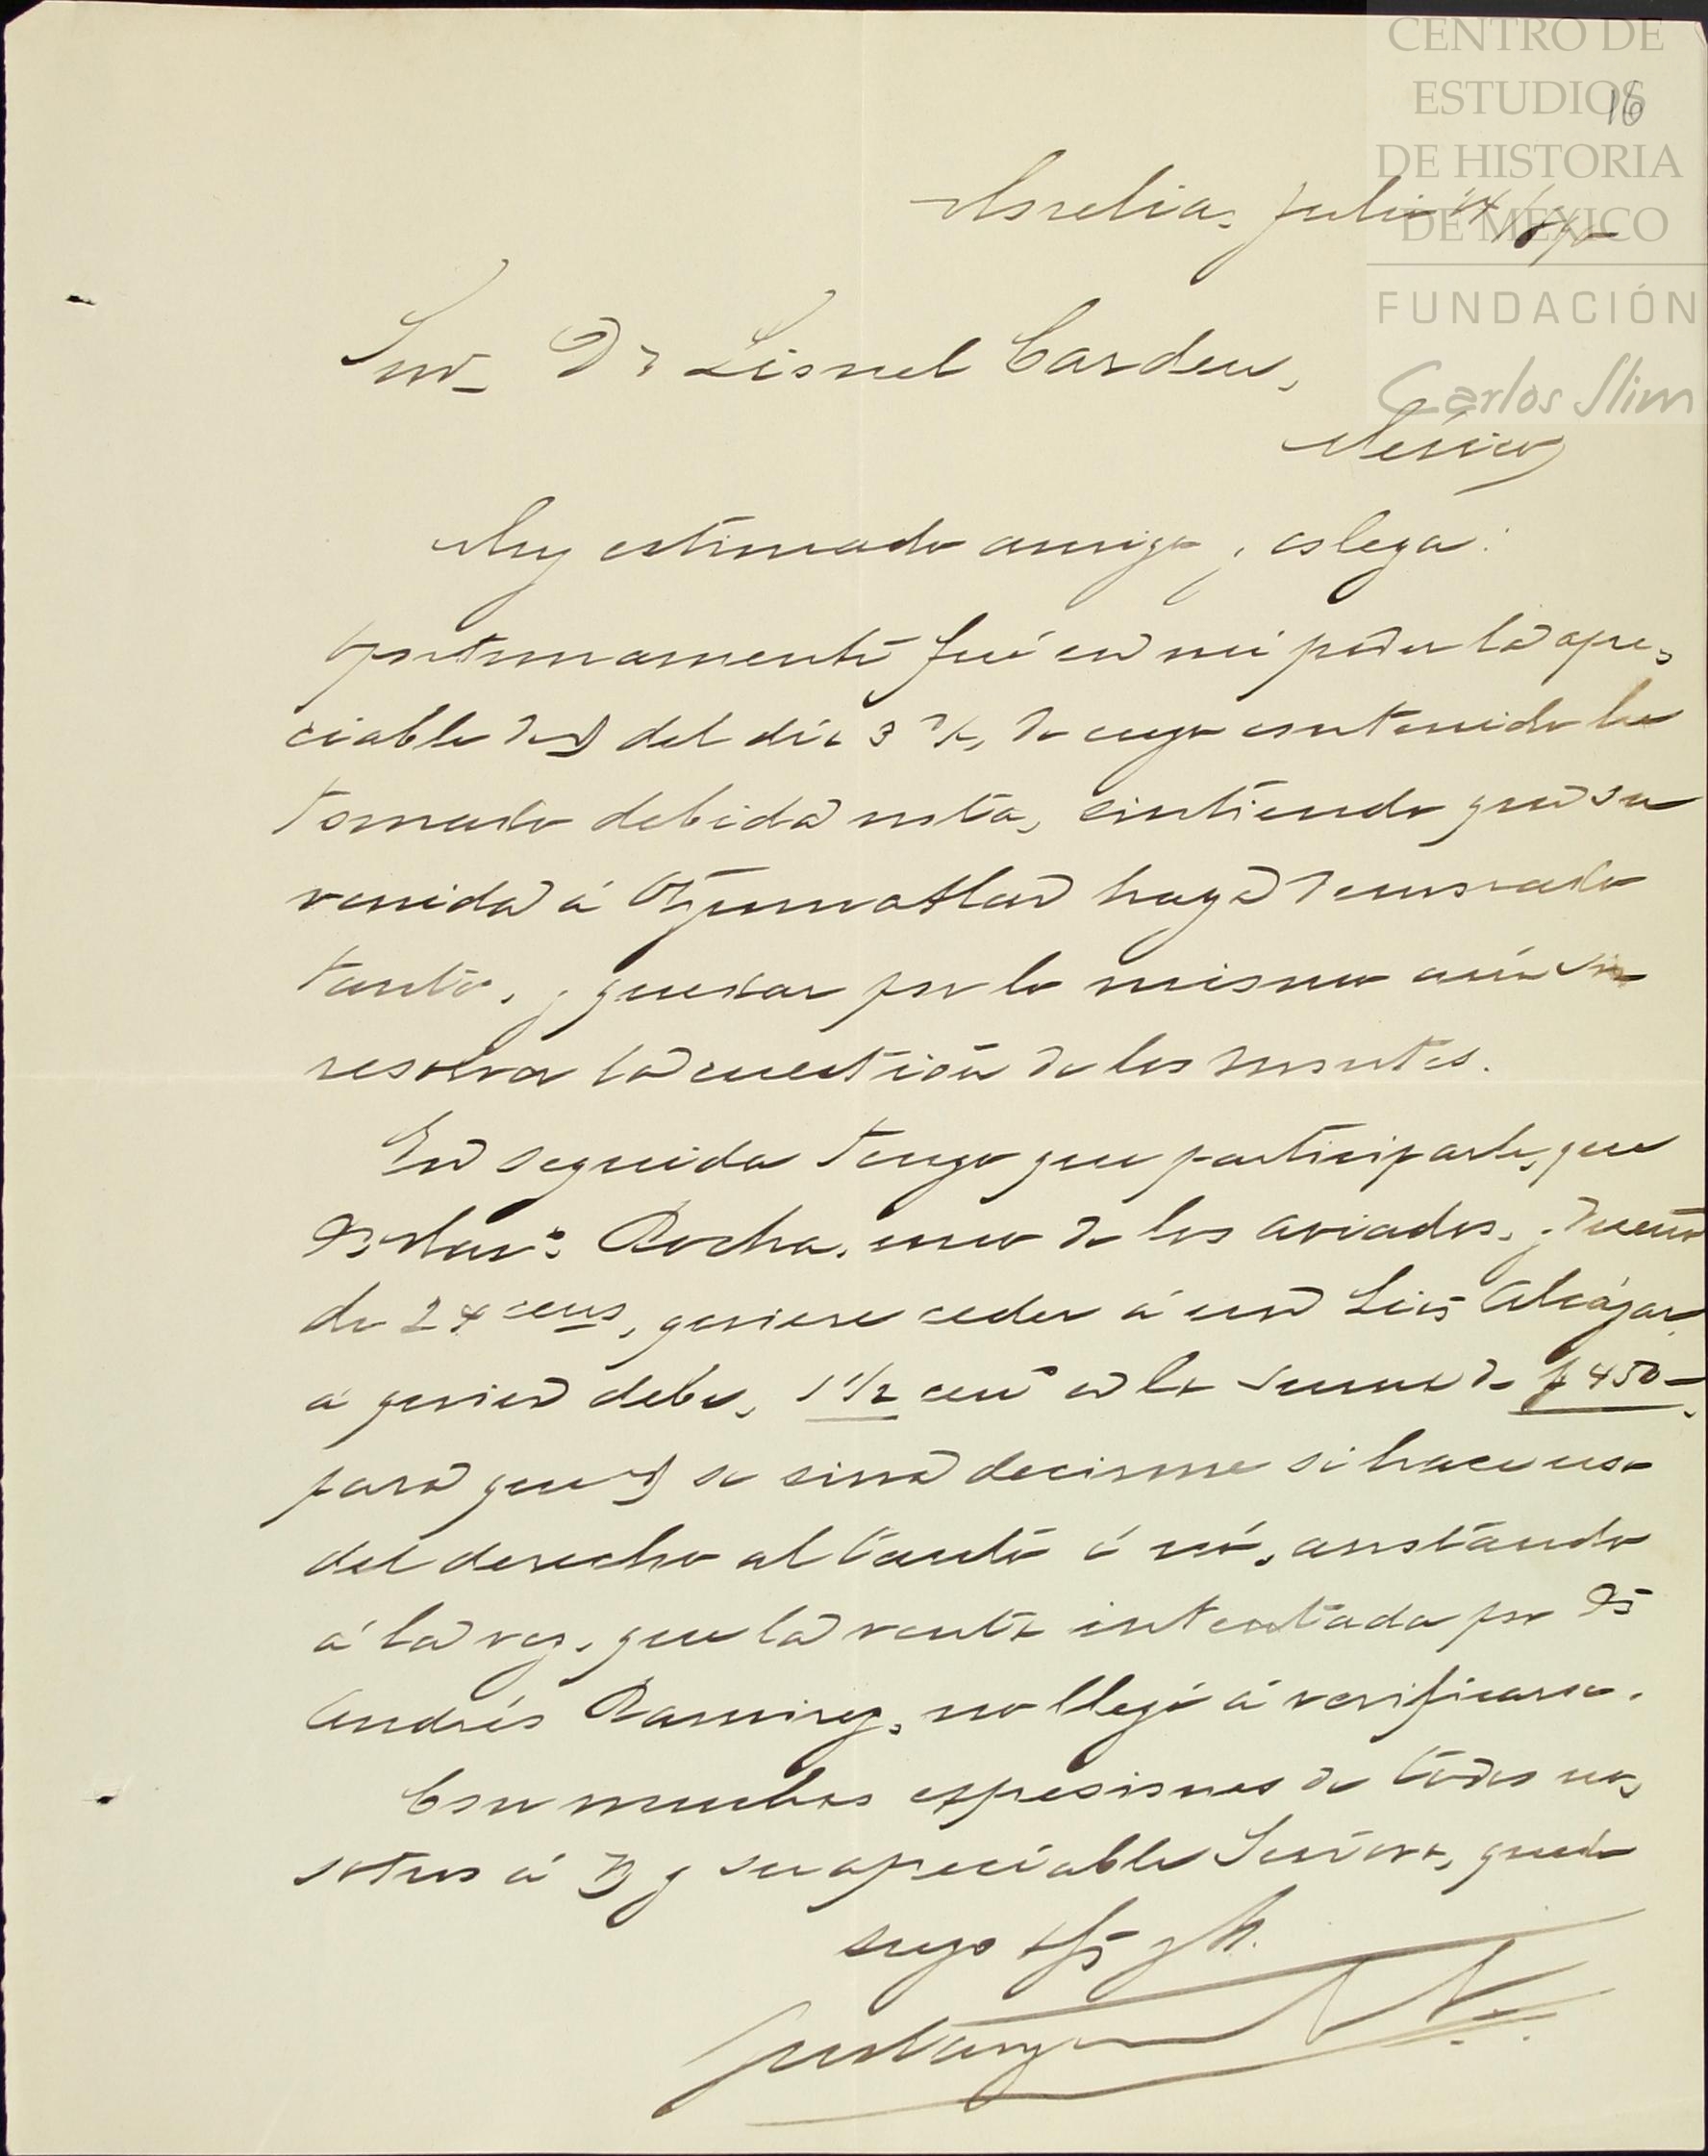 CENTRO DE
ESTUDIOS
DE HISTORIA
DE MÉXICO
FUNDACIÓN
Carlos Slim
16
Morelia, Julio 14/
Snr. Dn Lionel Carden,
México
Muy estimado amigo y colega:
Oportunamente fué en mi poder la apre-
ciable de V del día 3 de cuyo contenido he
tomado debida nota, sintiendo que su
venida á Ozumatlan haya demorado
tanto, y quedar por lo mismo aún sin
resolver la cuestión de los montes.
En seguida tengo que participarle, que
Dn Marno Rocha, uno de los aviados, y dueño
de 24 cens, quiere ceder á un Luis Alcázar
á quien debe, 1 1/2 cens en la suma de $450-
para que V se sirva decirme si hace uso
del derecho al tanto ó nó, anotando
á la vez, que la venta intentada por Dn
Andrés Ramirez, no llegó á verificarse.
Con muchas expresiones de todos no-
sotros á V y su apreciable Señora, quedo
suyo afmo y